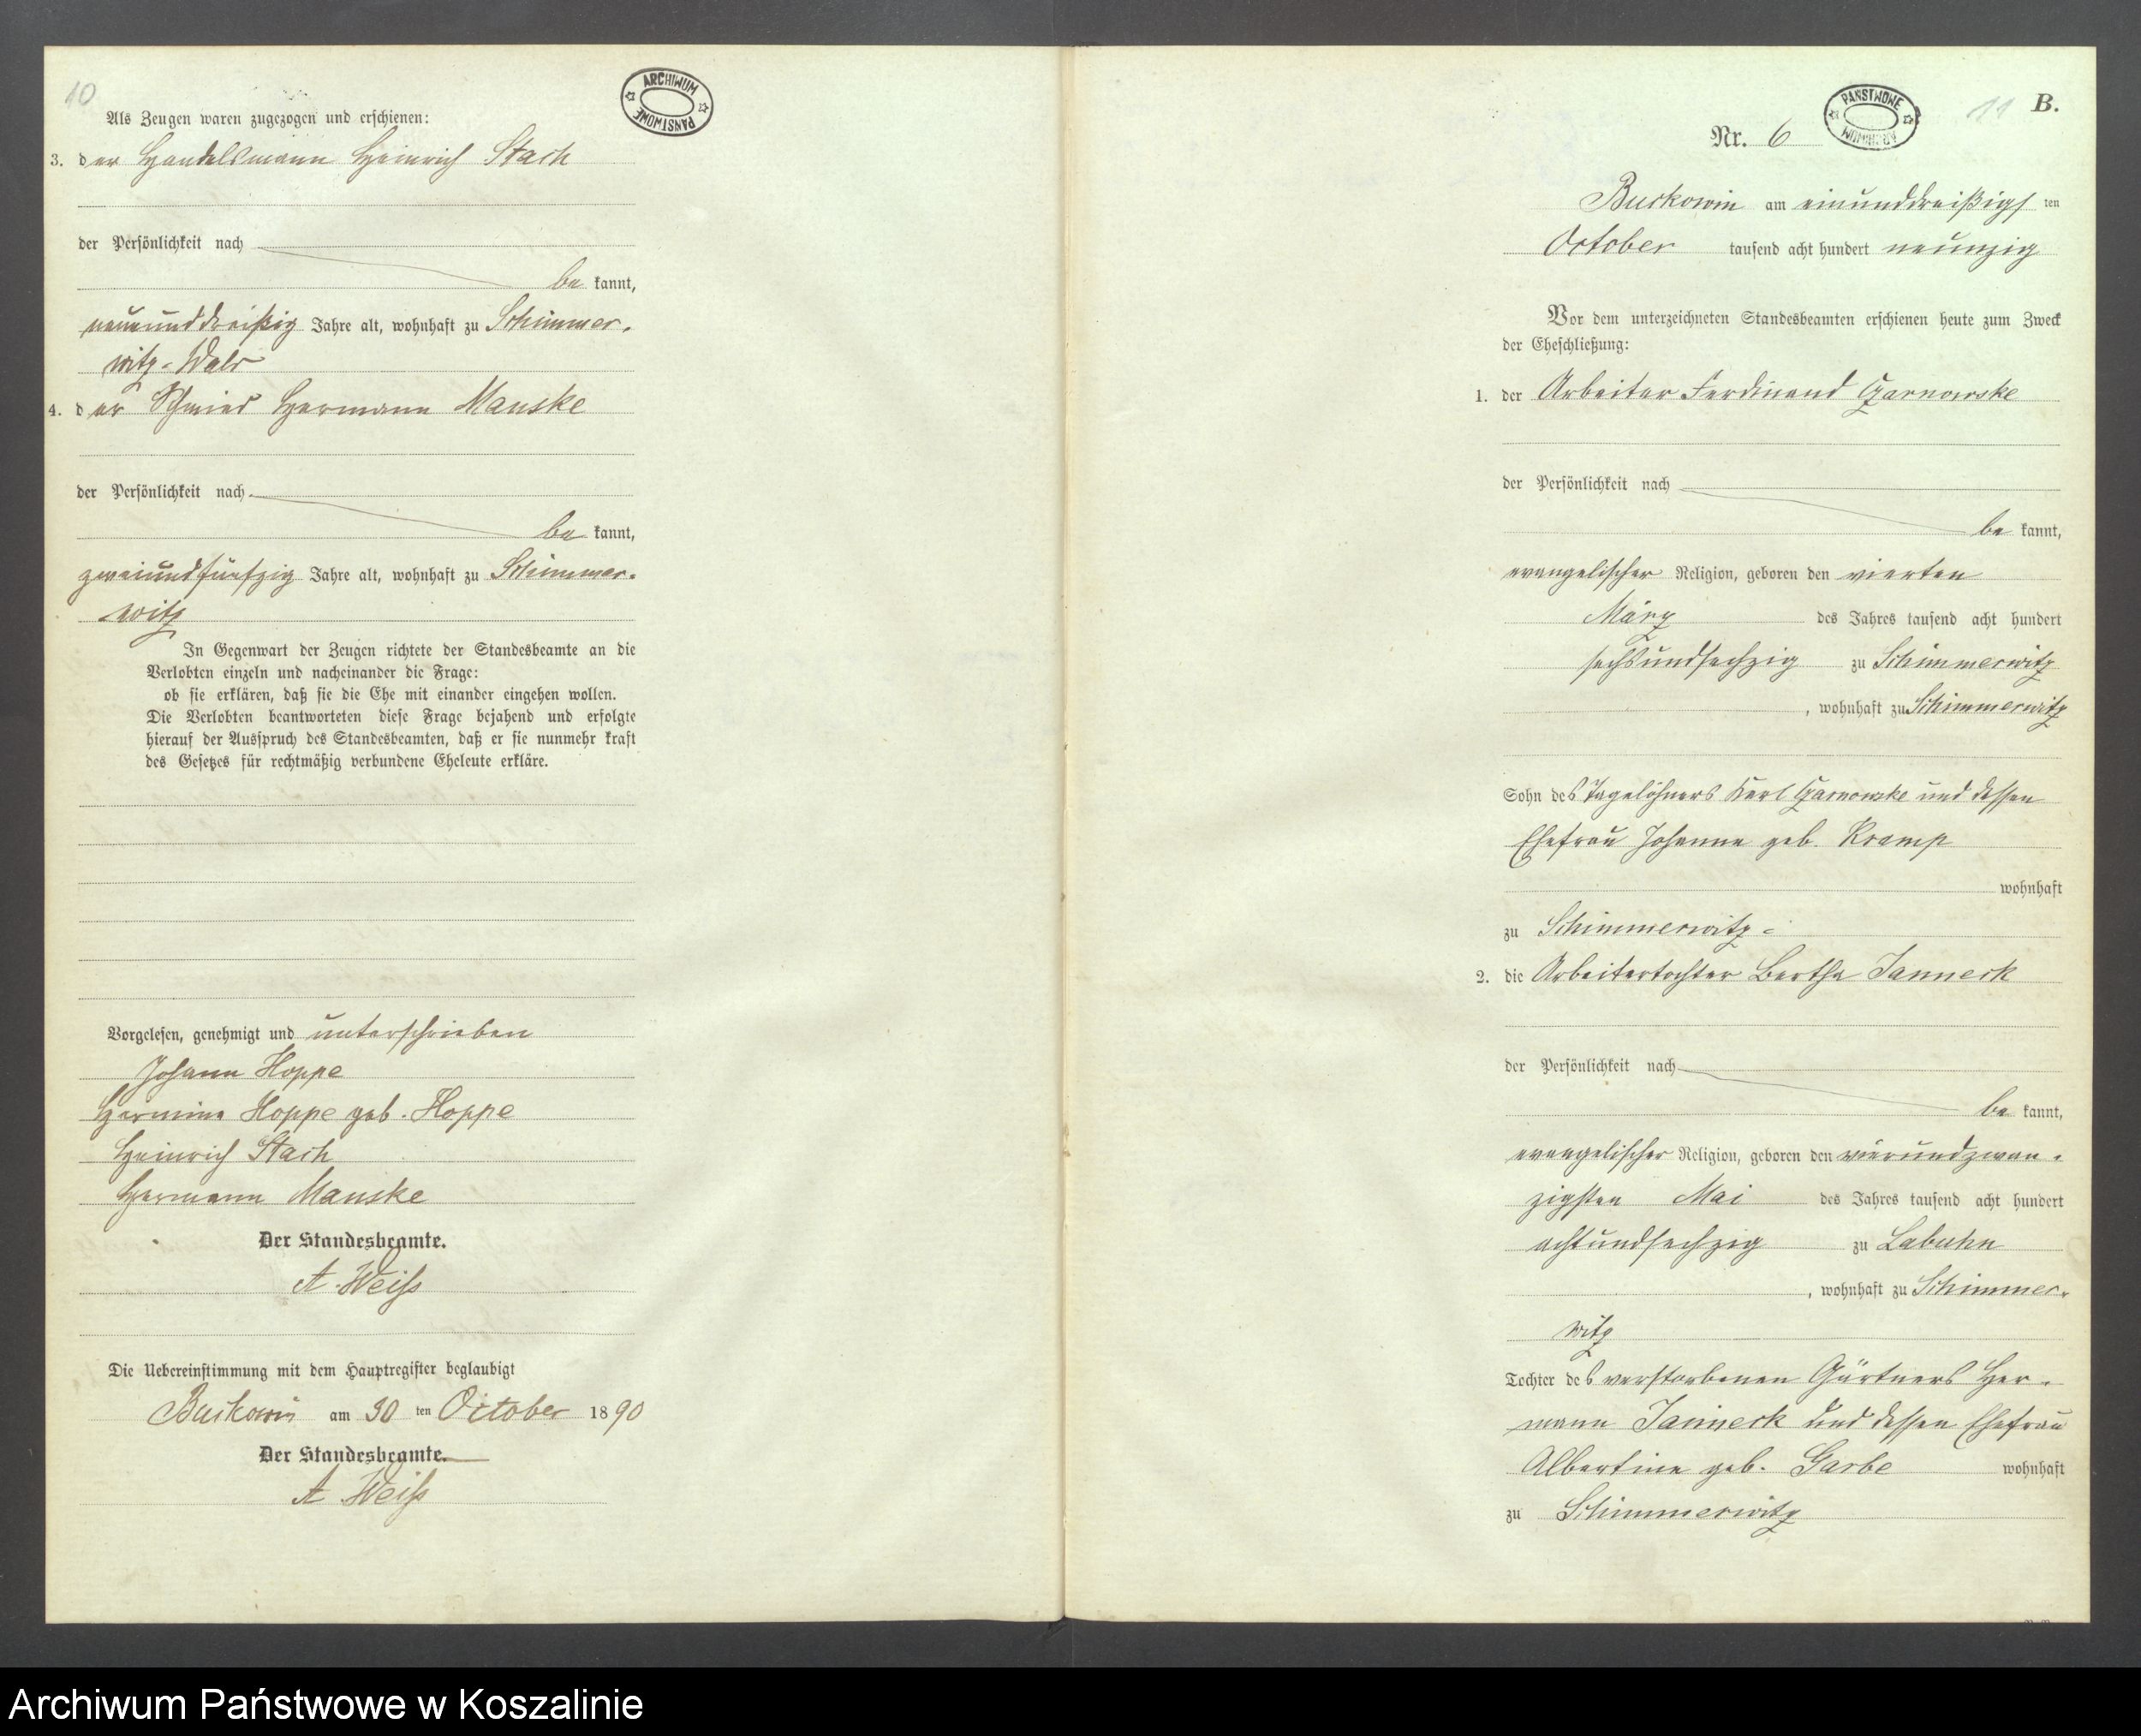 10
ARCHIWUM PANSTWOWE
Als Zeugen waren zugezogen und erschienen:
3. der Handelsmann Heinrich Stach
der Persönlichkeit nach
be kannt,
neununddreißig Jahre alt, wohnhaft zu Schimmer-
witz-Wald
4. der Schmied Hermann Manske
der Persönlichkeit nach
be kannt,
zweiundfünfzig Jahre alt, wohnhaft zu Schimmer-
witz
In Gegenwart der Zeugen richtete der Standesbeamte an die
Verlobten einzeln und nacheinander die Frage:
ob sie erklären, daß sie die Ehe mit einander eingehen wollen.
Die Verlobten beantworteten diese Frage bejahend und erfolgte
hierauf der Ausspruch des Standesbeamten, daß er sie nunmehr kraft
des Gesetzes für rechtmäßig verbundene Eheleute erkläre.
Vorgelesen, genehmigt und unterschrieben
Johann Hoppe
Hermine Hoppe geb. Hoppe
Heinrich Stach
Hermann Manske
Der Standesbeamte.
A. Weiß
Die Uebereinstimmung mit dem Hauptregister beglaubigt
Buckowin am 30 ten October 1890
Der Standesbeamte.
A. Weiß
11 B.
PAŃSTWOWE ARCHIWUM
Nr. 6
Buckowin am einunddreißigsten
October tausend acht hundert neunzig
Vor dem unterzeichneten Standesbeamten erschienen heute zum Zweck
der Eheschließung:
1. der Arbeiter Ferdinand Czarnowske
der Persönlichkeit nach
be kannt,
evangelischer Religion, geboren den vierten
März des Jahres tausend acht hundert
sechsundsechzig zu Schimmerwitz
, wohnhaft zu Schimmerwitz
Sohn des Tagelöhners Karl Czarnowske und dessen
Ehefrau Johanne geb. Kramp
wohnhaft
zu Schimmerwitz -
2. die Arbeitertochter Bertha Janneck
der Persönlichkeit nach
be kannt,
evangelischer Religion, geboren den vierundzwan-
zigsten Mai des Jahres tausend acht hundert
achtundsechzig zu Labuhn
, wohnhaft zu Schimmer-
witz
Tochter des verstorbenen Gärtners Her-
mann Janneck und dessen Ehefrau
Albertine geb. Garbe wohnhaft
zu Schimmerwitz
Archiwum Państwowe w Koszalinie